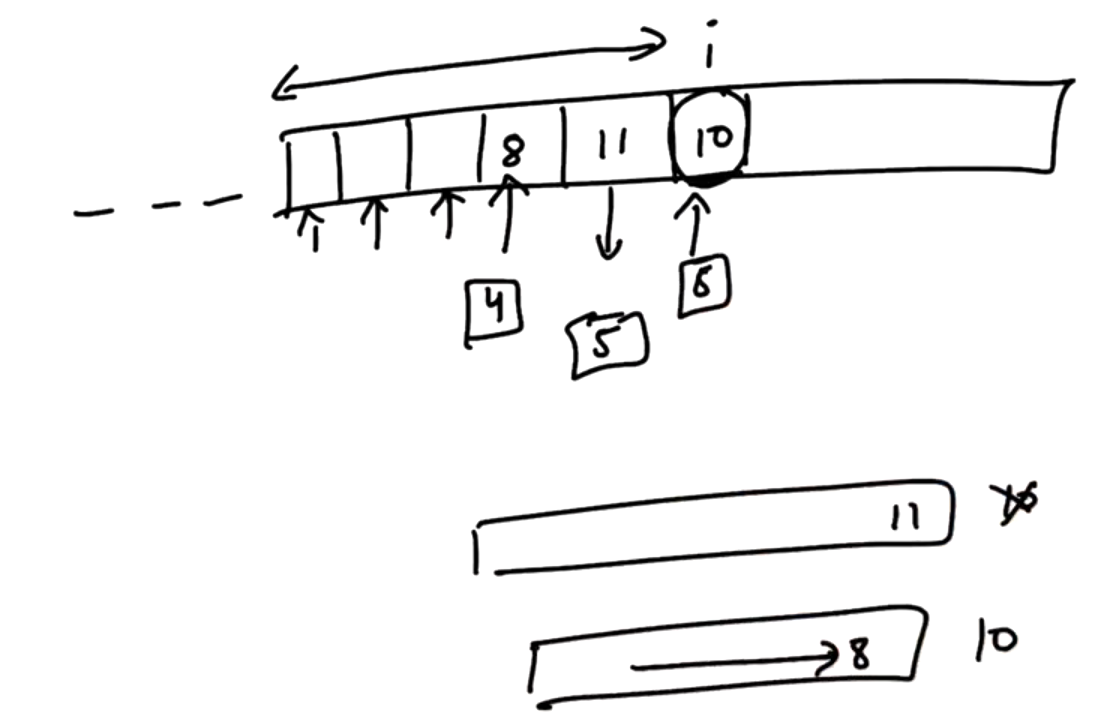 i
8 11 10
4
5
6
11
8 10